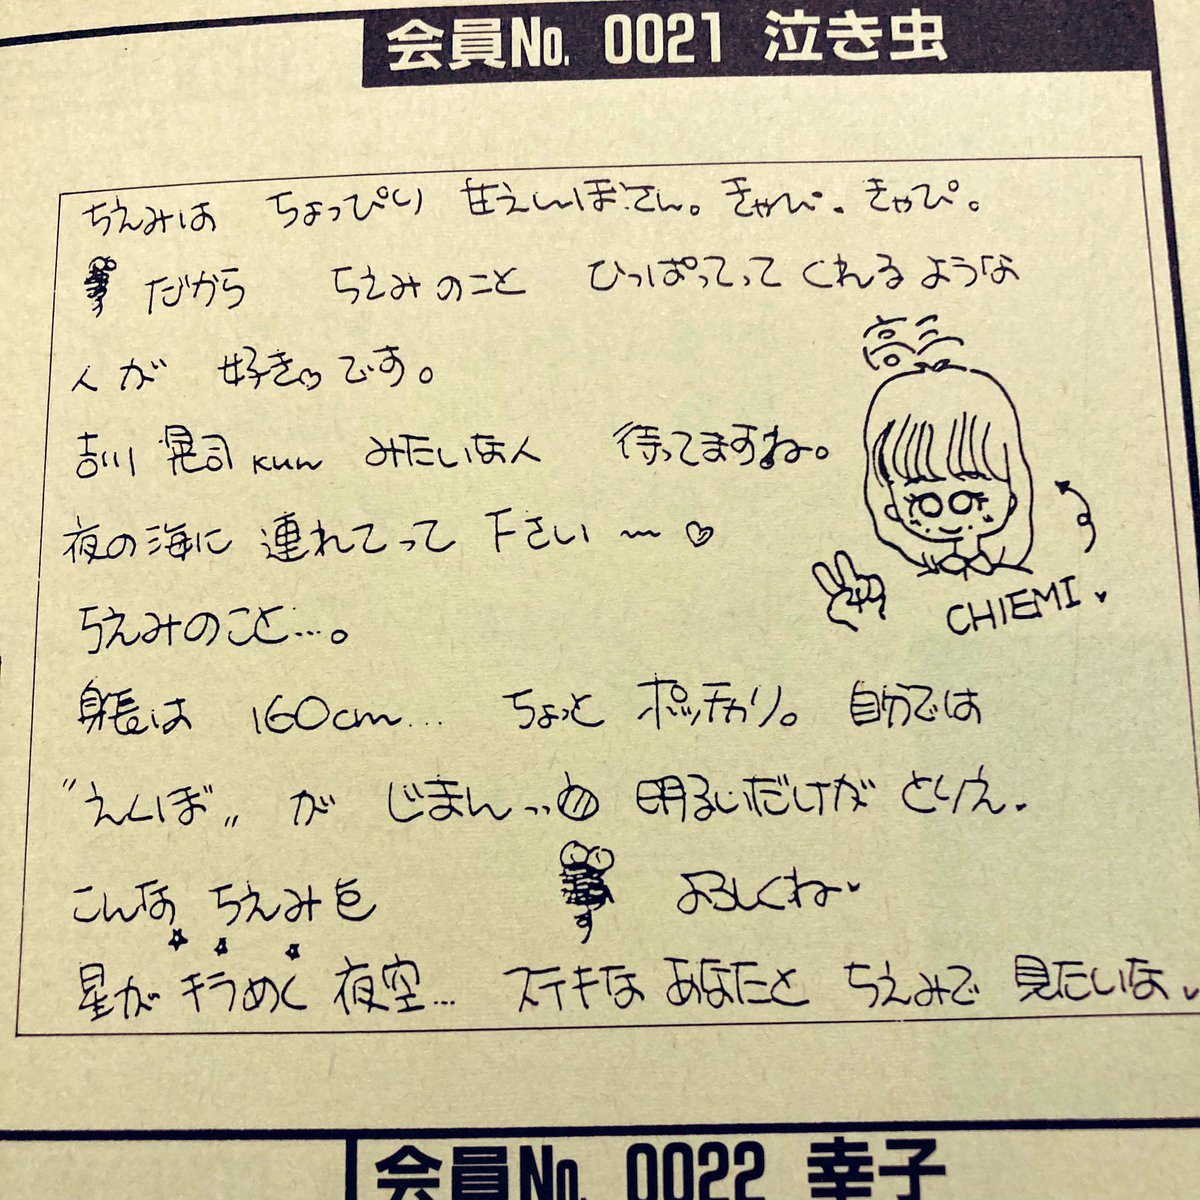 会員No. 0021 泣き虫
ちえみは ちょっぴり 甘えんぼさん。きゃぴ。きゃぴ。
だから ちえみのこと ひっぱってってくれるような
人が 好き♡です。
高三
吉川 晃司 kun みたいな人 待ってますね。
夜の海に 連れてって 下さい〜♡
CHIEMI
ちえみのこと…。
身長は 160cm… ちょっと ポッチャリ。自分では
"えくぼ" が じまんッ 明るいだけが とりえ.
こんな ちえみを よろしくね
星が キラめく 夜空… ステキな あなたと ちえみで 見たいな
会員No. 0022 幸子